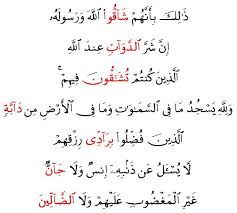 ذَٰلِكَ بِأَنَّهُمْ شَاقُّوا۟ ٱللَّهَ وَرَسُولَهُۥ
إِنَّ شَرَّ ٱلدَّوَآبِّ عِندَ ٱللَّهِ
ٱلَّذِينَ كُنتُمْ تُشَٰٓقُّونَ فِيهِمْ
وَلِلَّهِ يَسْجُدُ مَا فِى ٱلسَّمَٰوَٰتِ وَمَا فِى ٱلْأَرْضِ مِن دَآبَّةٍ
ٱلَّذِينَ فُضِّلُوا۟ بِرَآدِّى رِزْقِهِمْ
لَا يُسْـَٔلُ عَن ذَنۢبِهِۦٓ إِنسٌ وَلَا جَآنٌّ
غَيْرِ ٱلْمَغْضُوبِ عَلَيْهِمْ وَلَا ٱلضَّآلِّينَ